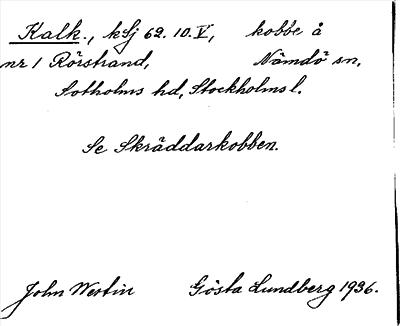 Kalk., kSj 62. 10. V, kobbe å
nr 1 Rörstrand, Nämdö sn,
Sotholms hd, Stockholms l.
Se Skräddarkobben.
John Westin Gösta Lundberg 1936.